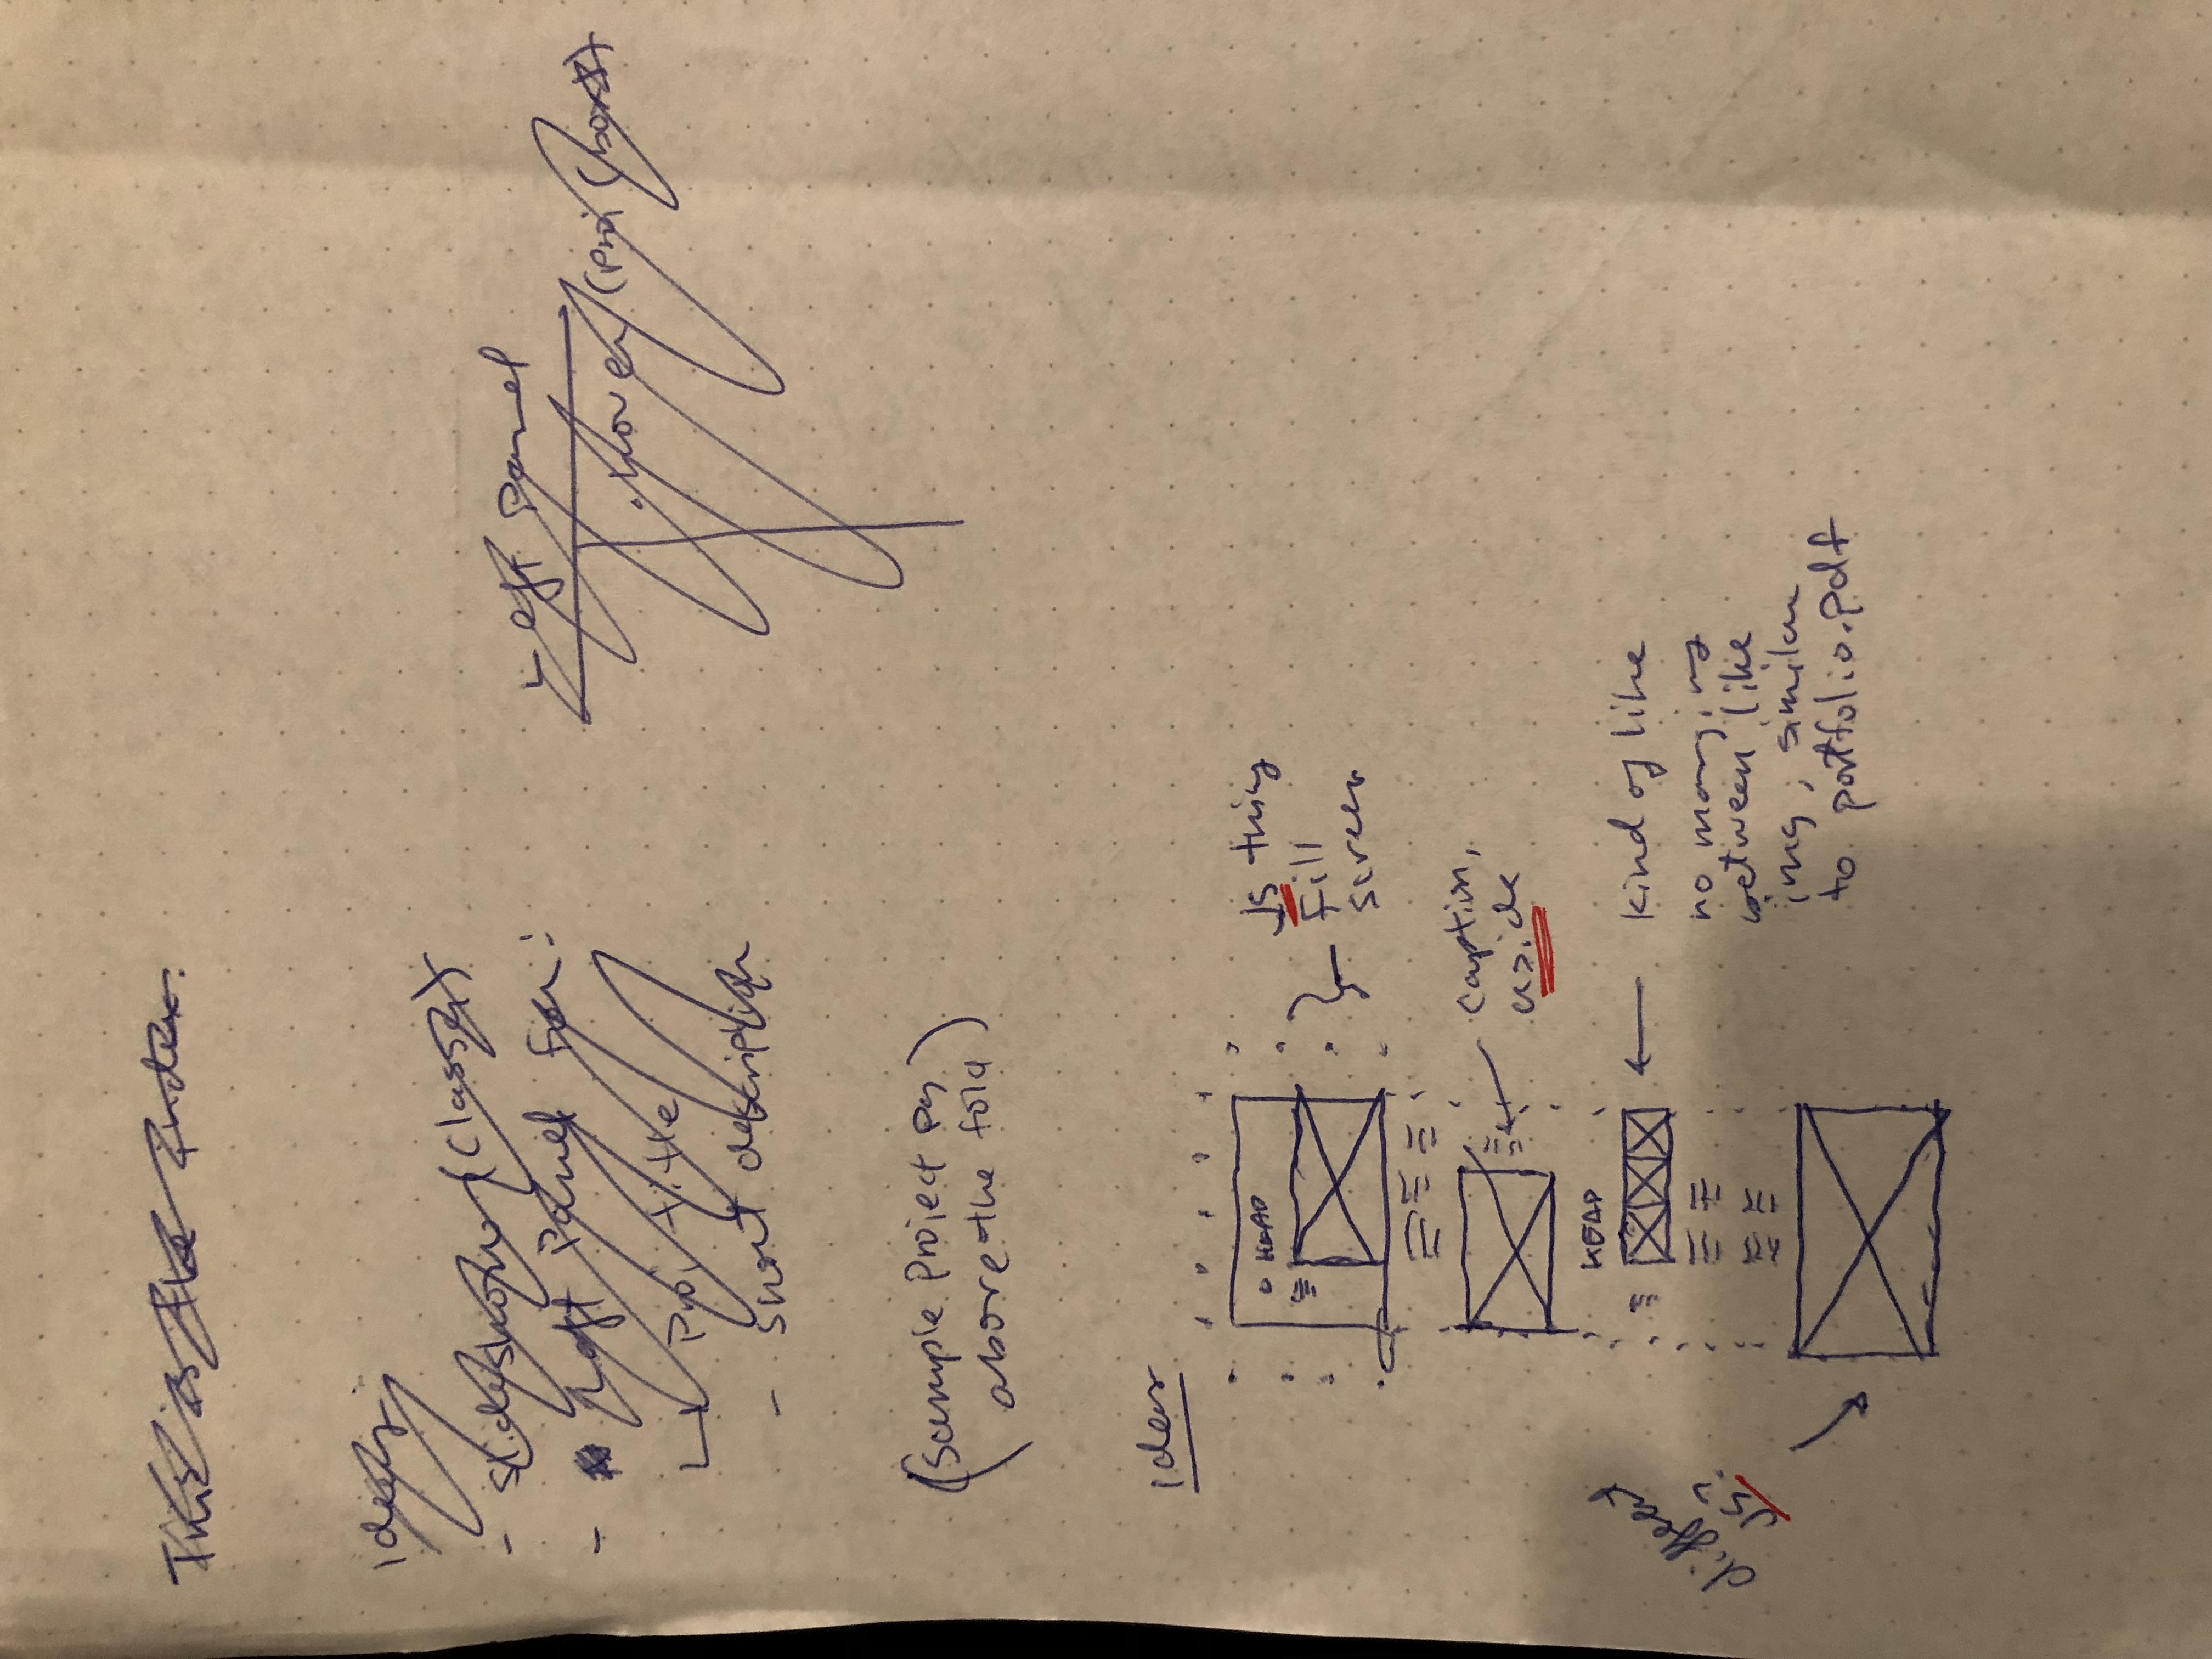 This is the index.
ideas:
- slideshow (classes)
- Left Panel for:
Proj title
- short description
Left Panel
.hover (proj boxes)
(Sample Project pg
above the fold)
ideas
HEAD
JS thing
Fill
screen
caption,
aside
HEAD
different
JS?
kind of like
no margins
between like
img, similar
to portfolio.pdf